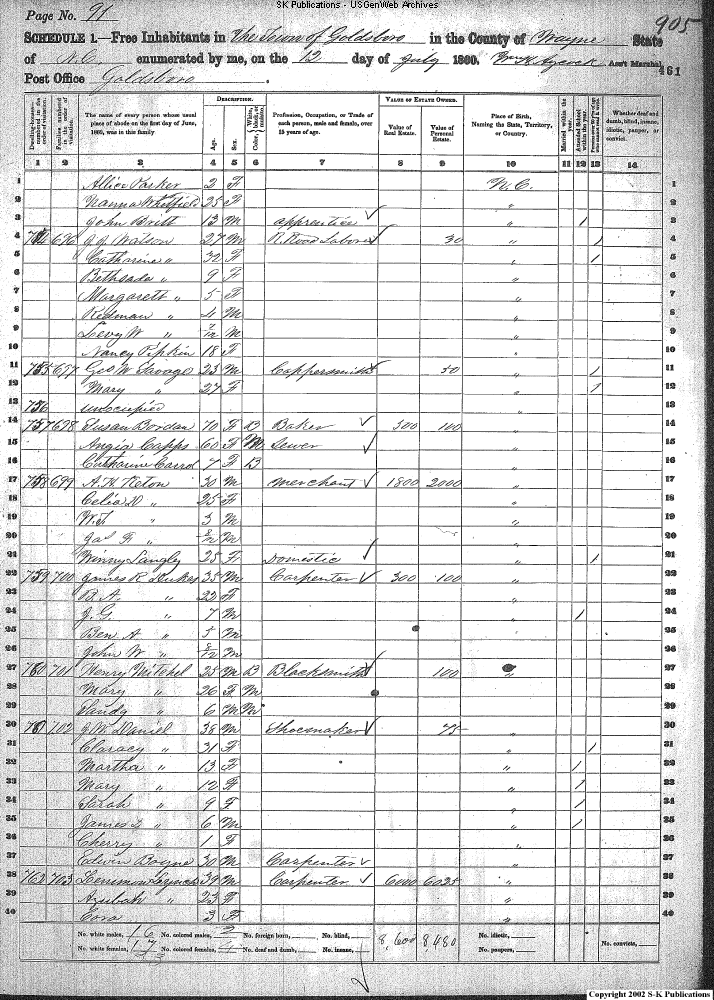 SK Publications - USGenWeb Archives
Page No. 91
905
SCHEDULE 1.—Free Inhabitants in The Town of Goldsboro in the County of Wayne State
of N.C. enumerated by me, on the 12 day of July 1860. Ass't Marshal.
461
Post Office Goldsboro.
Dwelling-houses— numbered in the order of visitation. Families numbered in the order of visitation. The name of every person whose usual place of abode on the first day of June, 1860, was in this family. DESCRIPTION. Age. Sex. Color, White, black, or mulatto. Profession, Occupation, or Trade of each person, male and female, over 15 years of age. VALUE OF ESTATE OWNED. Value of Real Estate. Value of Personal Estate. Place of Birth, Naming the State, Territory, or Country. Married within the year. Attended School within the year. Whether deaf and dumb, blind, insane, idiotic, pauper, or convict.
1 2 3 4 5 6 7 8 9 10 11 12 13 14
1 Allice Parker 2 F N.C. 1
2 Nanna Whitfield 25 F " 2
3 John Britt 13 M apprentice " / 3
4 754 696 J. J. Watson 27 M R. Road Laborer 30 " / 4
5 Catharine " 32 F " / 5
6 Bethsada " 9 F " 6
7 Margarett " 5 F " 7
8 Redman " 4 M " 8
9 Levy W " /12 M " 9
10 Nancy Pipkin 18 F " 10
11 755 697 Geo W Savage 23 M Coppersmith 50 " / 11
12 Mary " 27 F " / 12
13 756 unocupied " 13
14 757 698 Susan Bordan 70 F B Baker 300 100 " 14
15 Angia Capps 60 F M Sewer " 15
16 Catharine Carrol 7 F B " 16
17 758 699 A. H. Keton 30 M merchant 1800 2000 " 17
18 Celia D " 25 F " 18
19 W. T. " 3 M " 19
20 Jas F. " /12 M " 20
21 Winny Langley 25 F Domestic " / 21
22 759 700 James R Dukes 35 M Carpenter 300 100 " 22
23 B. A. " 22 F " 23
24 J. G. " 7 M " / 24
25 Ben A " 5 M " 25
26 John W " /12 M " 26
27 760 701 Henry Mitchel 25 M B Blacksmith 100 " 27
28 Mary " 26 F M " 28
29 Sandy " 6 M M " 29
30 761 702 J. W. Daniel 38 M Shoemaker 75 " 30
31 Claracy " 31 F " / 31
32 Martha " 13 F " / 32
33 Mary " 12 F " / 33
34 Sarah " 9 F " / 34
35 James " 6 M " / 35
36 Cherry " 1 F " 36
37 Edwin Boyne 30 M Carpenter " 37
38 762 703 Lemmon 39 M Carpenter 6000 6025 " 38
39 Azubah " 23 F " 39
40 Cora " 3 F " 40
No. white males, 16 No. colored males, 2 No. foreign born, No. blind, 8,600 8,480 No. idiotic, No. convicts,
No. white females, 17 No. colored females, 4 No. deaf and dumb, No. insane, No. paupers,
Copyright 2002 S-K Publications